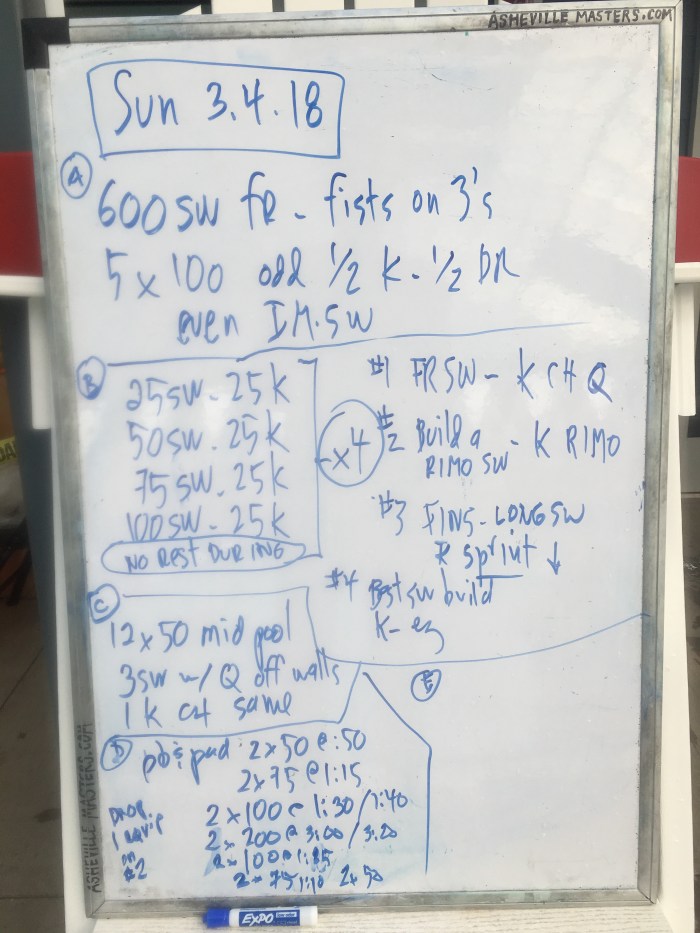 ASHEVILLE MASTERS.COM
Sun 3.4.18
A
600 SW fR - fists on 3's
5 x 100 odd 1/2 K - 1/2 DR
even IM. SW
B
25 SW - 25 K
50 SW - 25 K
75 SW - 25 K
100 SW - 25 K
NO REST DURING
x4
#1 FR SW - K CH Q
#2 Build a RIMO SW - K RIMO
#3 FINS - LONG SW
K sprint ↓
#4 Best SW build
K - ez
C
12 x 50 mid pool
3 SW w/ Q off walls
1 K CH same
D
pb & pad: 2 x 50 @ :50
2 x 75 @ 1:15
2 x 100 @ 1:30 / 1:40
2 x 200 @ 3:00 / 3:20
2 x 100 @
2 x 75 1:10 2 x 50
DROP
1
on
#2
E
ASHEVILLE MASTERS.COM
EXPO